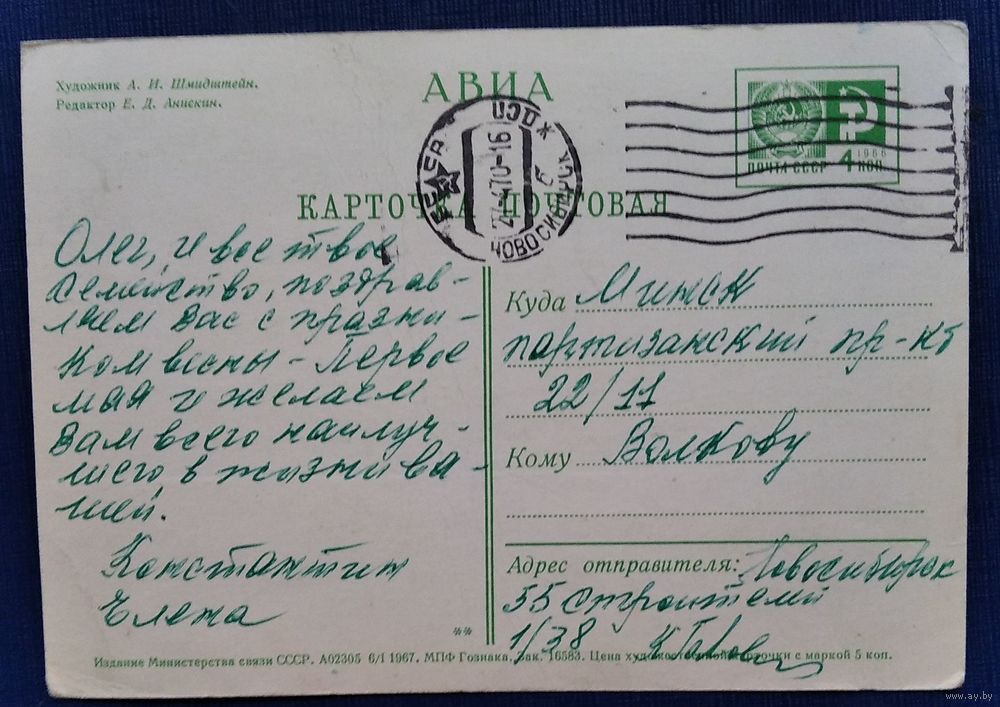 Художник А. И. Шмидштейн.
Редактор Е. Д. Анискин.
АВИА
КАРТОЧКА ПОЧТОВАЯ
1966
ПОЧТА СССР 4 КОП.
НОВОСИБИРСК
Олег, и все твое
семейство, поздрав-
ляем Вас с праздни-
ком весны - Первое
мая и желаем
Вам всего наилуч-
шего, в жизни ва-
шей.
Константин
Елена
Куда Минск
партизанский пр-кт
22/11
Кому Волкову
Адрес отправителя: Новосибирск
55 Строителей
1/38
**
Издание Министерства связи СССР. А02305 6/I 1967. МПФ Гознака. Зак. 16583. Цена художественной карточки с маркой 5 коп.
www.ay.by